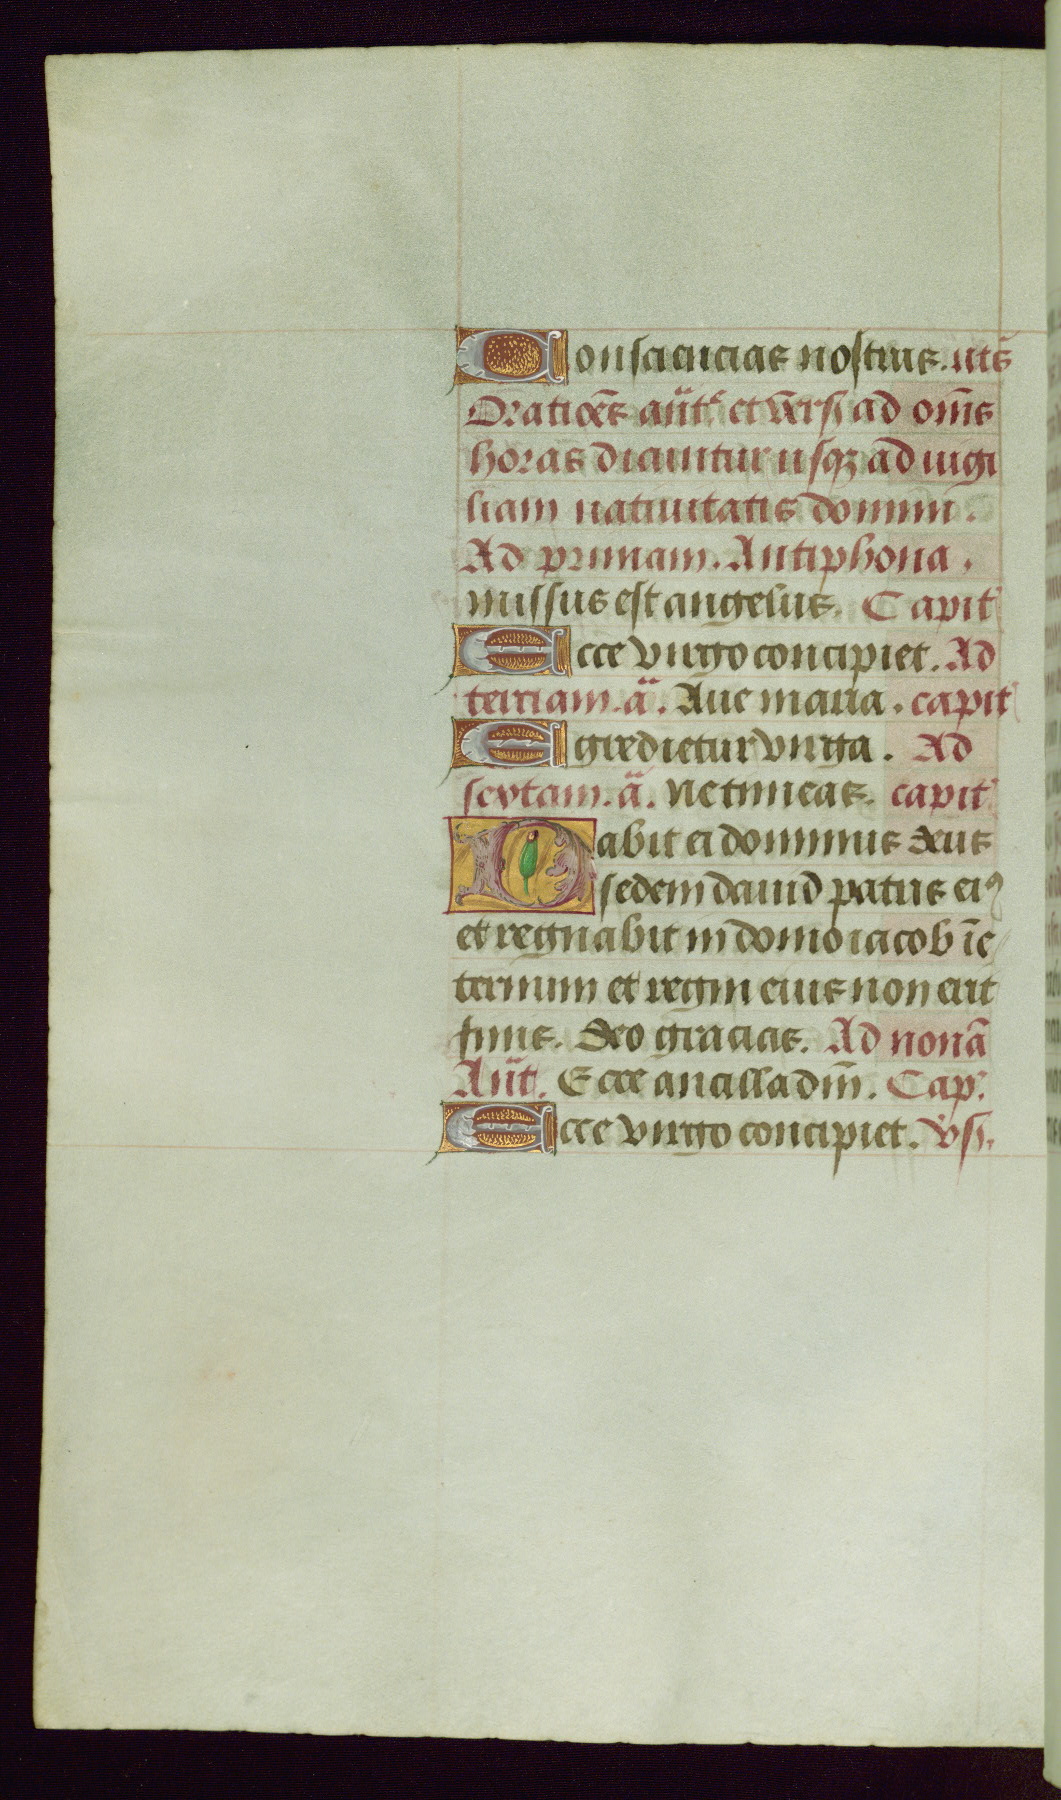 Consciencias nostras. ut s̄
Oratiões aūt. et v̄ersi ad om̄s
horas dicuntur usqꝫ ad uigi
liam natiuitatis domini.
Ad primam. Antiphona.
missus est angelus. Capit'
Ecce virgo concipiet. Ad
terciam. ā. Aue maria. capit'
Egredietur virga. Ad
sextam. ā. Ne timeas. capit'
Dabit ei dominus deus
sedem dauid patris eiꝰ
et regnabit in domo iacob ī e
ternum et regni eius non erit
finis. Deo gracias. Ad nonā
Aūt. Ecce ancilla dn̄i. Cap.
Ecce virgo concipiet. v̄si.